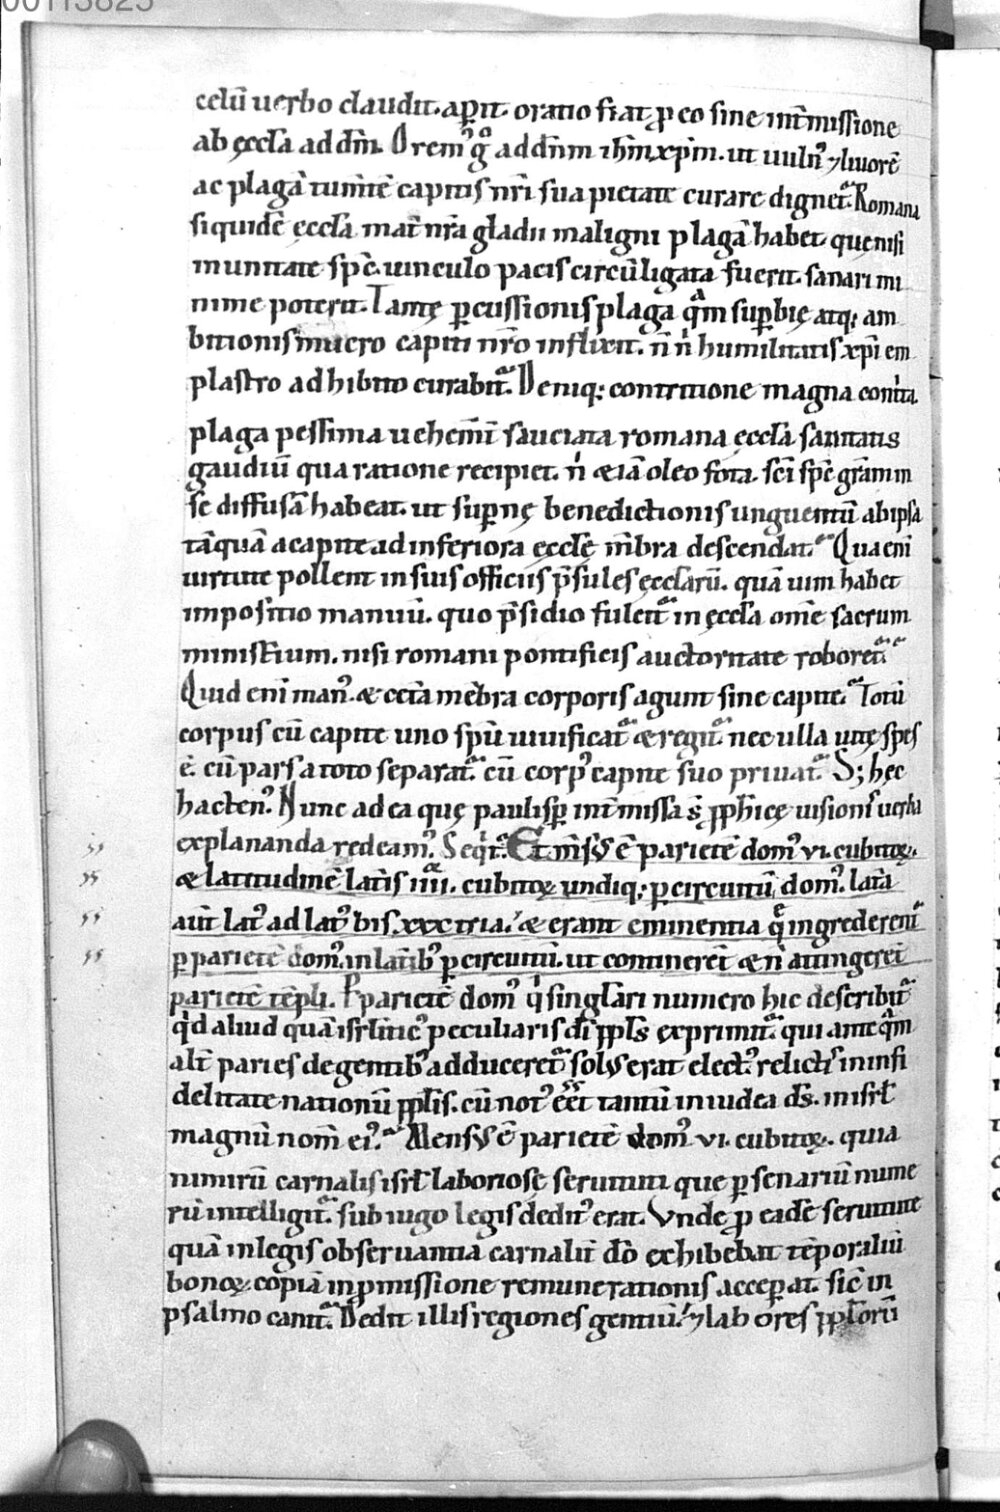 00113825
celū uerbo claudit. aꝑit. oratio fiat ꝓ eo sine int̄missione
ab ęccƚa ad dm̄. Orem᷒ gͦ ad dn̄m ih̄m xp̄m. ut uuln᷒ ⁊ liuorē
ac plagā tum̄tē capitis nr̄i sua pietate curare dignet᷑. Romana
siquidē ęccƚa mat̄ nr̄a gladii maligni plagā habet. que nisi
in unitate sp̄c. uinculo pacis circūligata fuerit. sanari mi
nime poterit. Tantę ꝑcussionis plaga quā sup̱bię atq; am
bitionis mucro capiti nr̄o inflixit. n̄ nͥ humilitatis xp̄i em
plastro adhibito curabit᷑. Deniq; contritione magna cont̍ta
plaga pessima uehem̄t̄ sauciata romana ęccƚa. sanitatis
gaudiū qua ratione recipiet. nͥ & iā oleo fota. sc̄i sp̄c gr̄am in
se diffusā habeat. ut sup̱nę benedictionis unguentū ab ipsa
tāquā a capite ad inferiora ęccƚę m̄bra descendat. Qua enī
uirtute pollent in suis officiis p̄sules ęccƚarū. quā uim habet
impositio manuū. quo p̄sidio fulcit᷑ in ęccƚa om̄e sacrum
minist̄ium. nisi romani pontificis auctoritate roboret᷑
Quid enī man᷒ & cet̄a mēbra corporis agunt sine capite. Totū
corpus cū capite uno sp̄u uiuificat᷑ & regit᷑. nec ulla uitę spes
ē. cū pars a toto separat᷑. cū corp᷒ capite suo priuat᷑. S; hęc
hacten᷒. Nunc ad ea quę paulisꝑ int̄missa s̄ ꝓph̄icę uisionis uerba
explananda redeam᷒. Seqͥt᷑. Et m̄sus ē parietē dom᷒ vi. cubitoꝝ.
& latitudinē lat̄is iiii. cubitoꝝ undiq; ꝑ circuitū dom᷒. lat̄a
aūt lat᷒ ad lat᷒ bis. xxx tria. & erant eminentia quę ingrederent᷑
ꝑ parietē dom᷒ in lat̄ib᷒ ꝑ circuitū. ut continerēt & n̄ attingerēt
parietē tēpli. Ꝑ parietē dom᷒ qͥ singƚari numero hic describit᷑
qͥd aliud quā isr̄litic᷒ peculiaris dī ꝓpƚs exprimit᷑. qui ante quā
alt̄ paries de gentib᷒ adduceret᷑. solus erat elect᷒ relictis in infi
delitate nationū ꝓpƚis. cū not᷒ eēt tantū in iudea d̄s. in isrƚ
magnū nom̄ ei᷒. Mensus ē parietē dom᷒ vi. cubitoꝝ. quia
nimirū carnalis isrƚ laboriosę seruituti que ꝑ senariū nume
rū intelligit᷑. sub iugo legis dedit᷒ erat. Vnde ꝓ eadē seruitute
quā in legis obseruantia carnalit̄ dō exhibebat tēporaliū
bonoꝝ copiā in ꝓmissione remunerationis acceꝑat. sic̄ in
psalmo canit᷑. Dedit illis regiones gentiū. ⁊ labores ꝓpƚorū